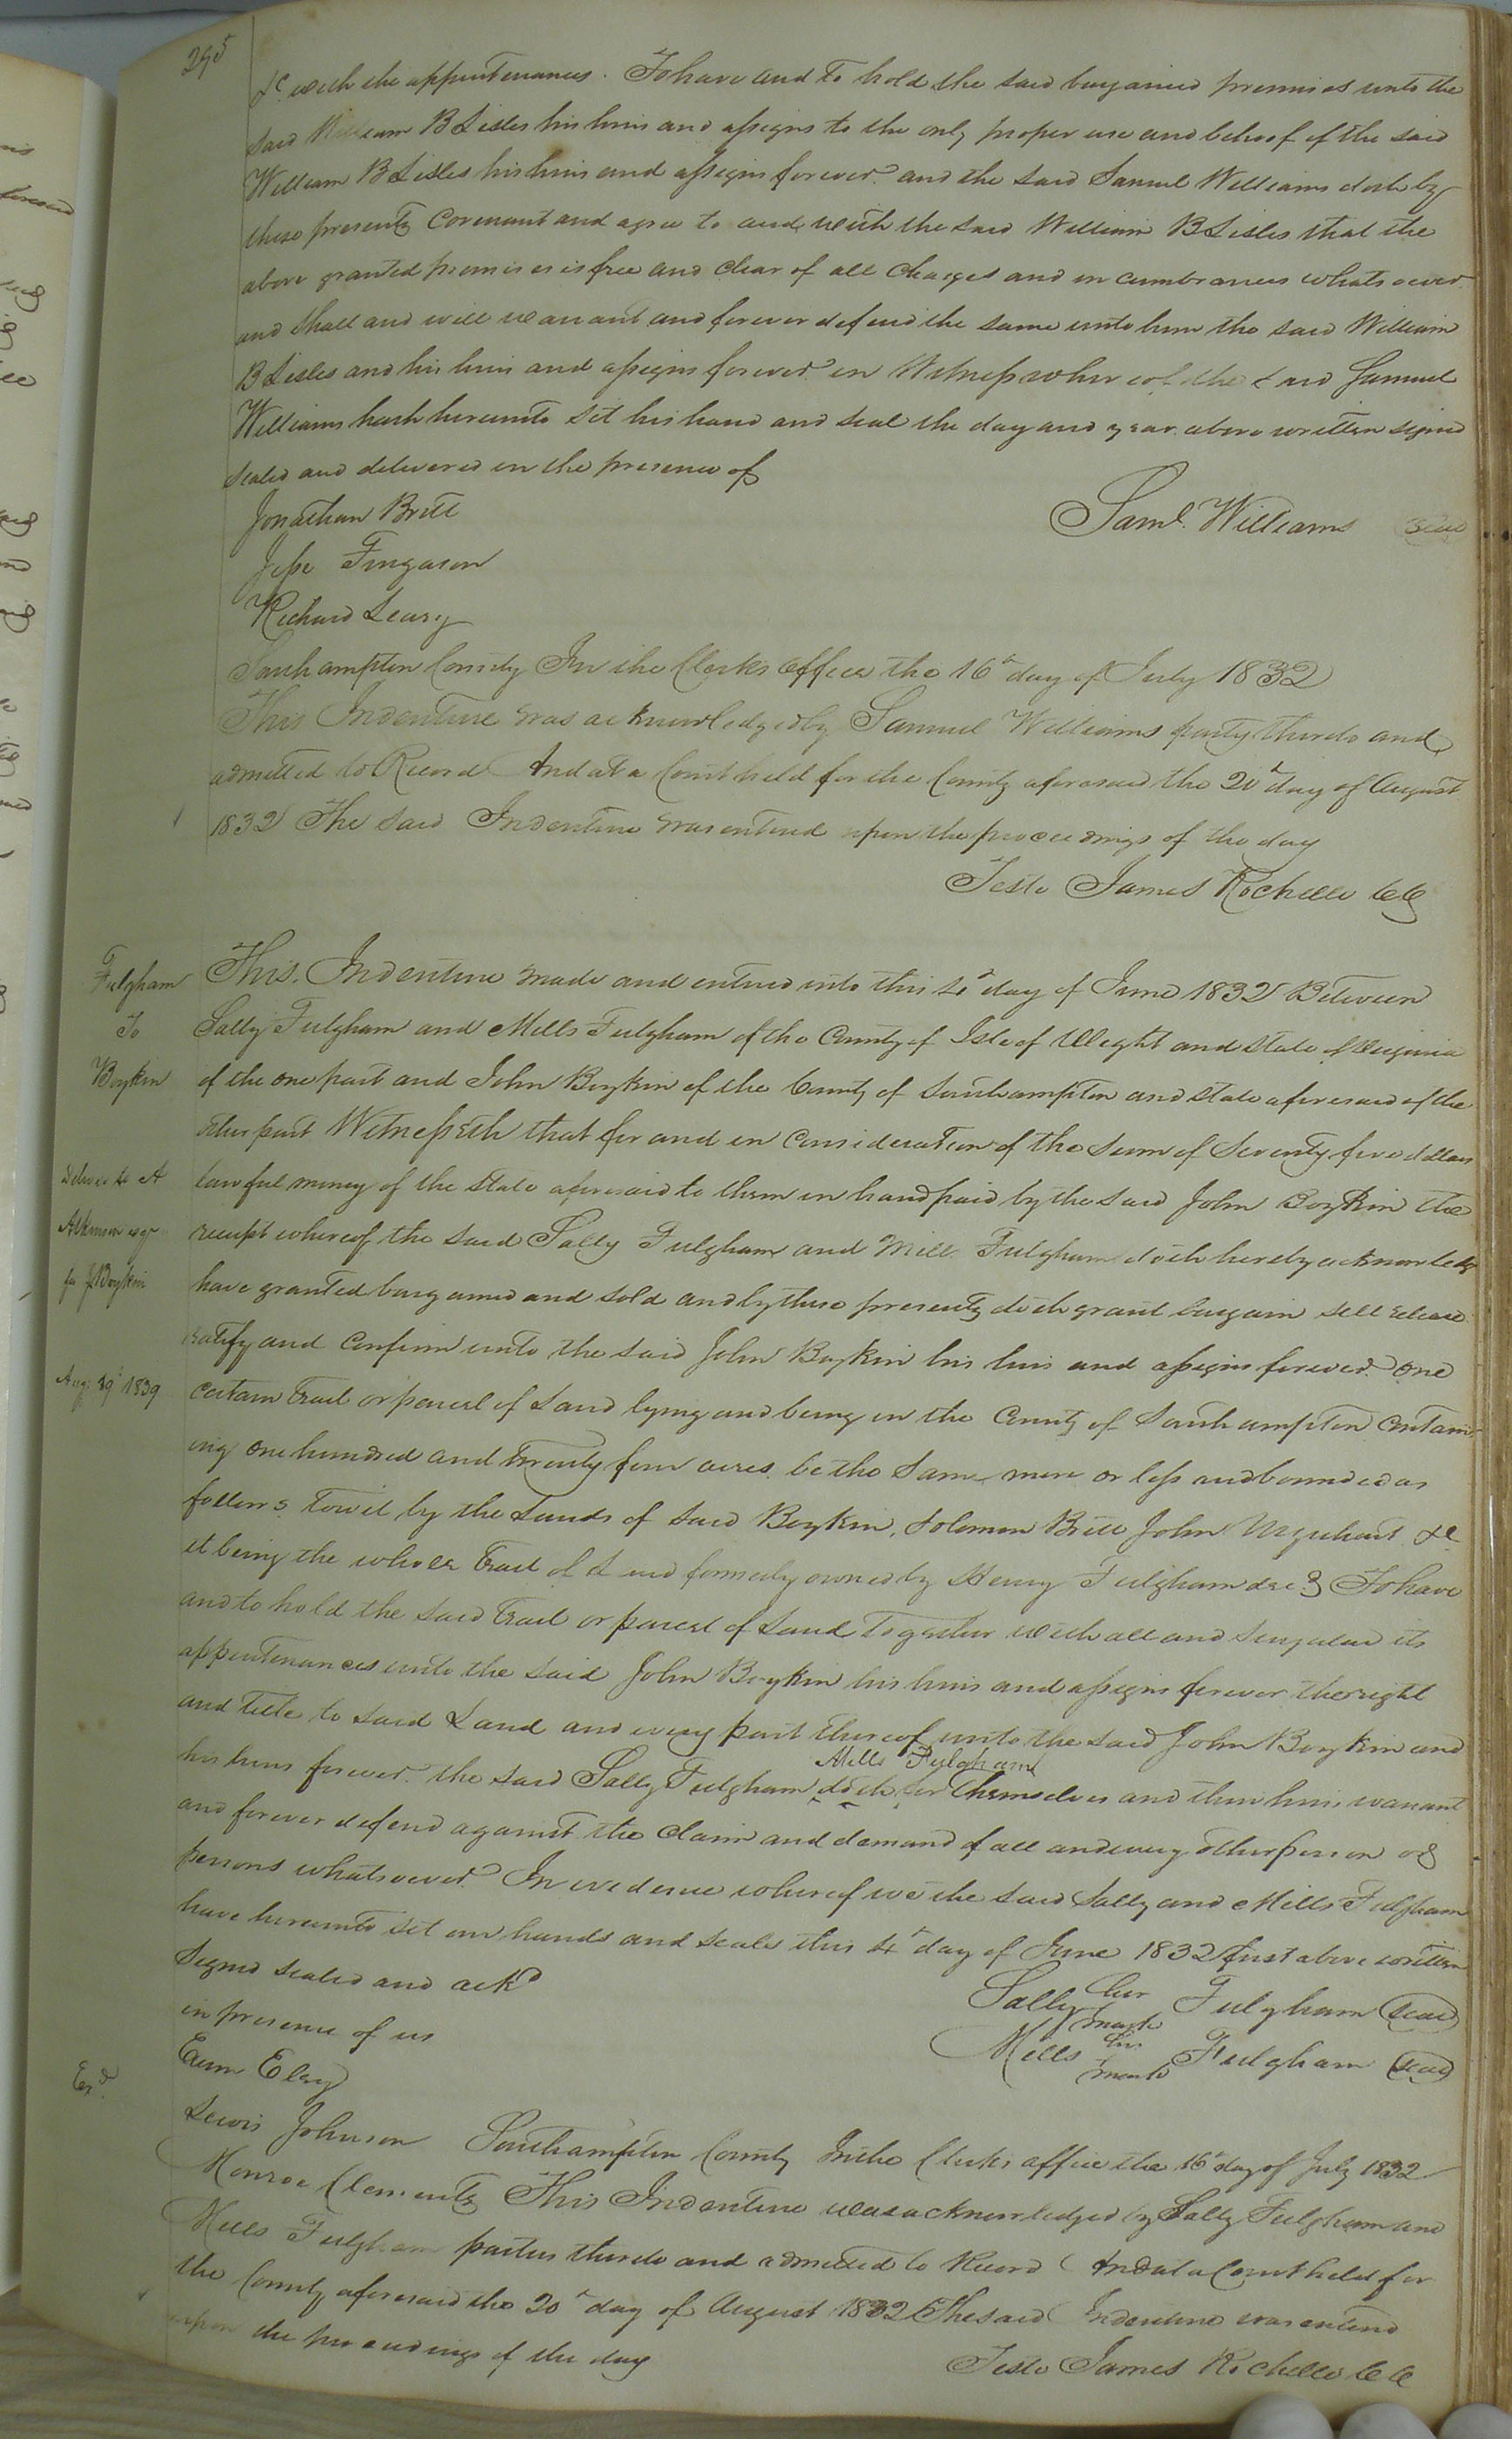 295
&c with the appurtenances. To have and to hold the said bargained premises unto the
said William B Lisles his heirs and assigns to the only proper use and behoof of the said
William B Lisles his heirs and assigns forever. and the said Samuel Williams doth by
these presents Covenant and agree to and with the said William B Lisles that the
above granted premises is free and clear of all charges and incumbrances whatsoever
and shall and will warrant and forever defend the same unto him the said William
B Lisles and his heirs and assigns forever in Witness whereof the said Samuel
Williams hath hereunto set his hand and seal the day and year above written signed
sealed and delivered in the presence of
Jonathan Britt
Saml. Williams seal
Jesse
Richard
Southampton County In the Clerks office the 16th day of July 1832
This Indenture was acknowledged by Samuel Williams party thereto and
admitted to Record And at a Court held for the County aforesaid the 20th day of August
1832 The said Indenture was entered upon the proceedings of the day
Teste James Rochelle CC
Fulgham
To
Boykin
This Indenture made and entered into this 4th day of June 1832 Between
Sally Fulgham and Mills Fulgham of the County of Isle of Wight and State of Virginia
of the one part and John Boykin of the County of Southampton and State aforesaid of the
other part Witnesseth that for and in Consideration of the Sum of Seventy five dollars
Deliver to A
Atkinson esqr
for J Boykin
Aug 19th 1839
lawful money of the State aforesaid to them in hand paid by the said John Boykin the
receipt whereof the said Sally Fulgham and Mills Fulgham doth hereby acknowledge
have granted bargained and sold and by these presents doth grant bargain sell release
ratify and Confirm unto the said John Boykin his heirs and assigns forever. One
certain Tract or parcel of Land lying and being in the County of Southampton Contain
ing One hundred and twenty four acres be the Same more or less and bounded as
follows. Towit by the Lands of said Boykin, Solomon Britt John Urquhart &c
it being the whole Tract of Land formerly owned by Henry Fulgham decd To have
and to hold the said Tract or parcel of Land Together with all and singular its
appurtenances unto the said John Boykin his heirs and assigns forever the right
and title to said Land and every part thereof unto the said John Boykin and
Mills Fulgham
his heirs forever. the said Sally Fulgham doth for themselves and their heirs warrant
and forever defend against the Claim and demand of all and every other person or
persons whatsoever. In evidence whereof we the said Sally and Mills Fulgham
have hereunto set our hands and seals this 4th day of June 1832 first above written
Signed sealed and ackd
in presence of us
Sally her mark Fulgham seal
Mills his mark Fulgham seal
Exum Eley
Exd.
Lewis Johnson Southampton County In the Clerks office the 16th day of July 1832
Monroe Clements This Indenture was acknowledged by Sally Fulgham and
Mills Fulgham parties thereto and admitted to Record And at a Court held for
the County aforesaid the 20th day of August 1832 The said Indenture was entered
upon the proceedings of the day
Teste James Rochelle CC